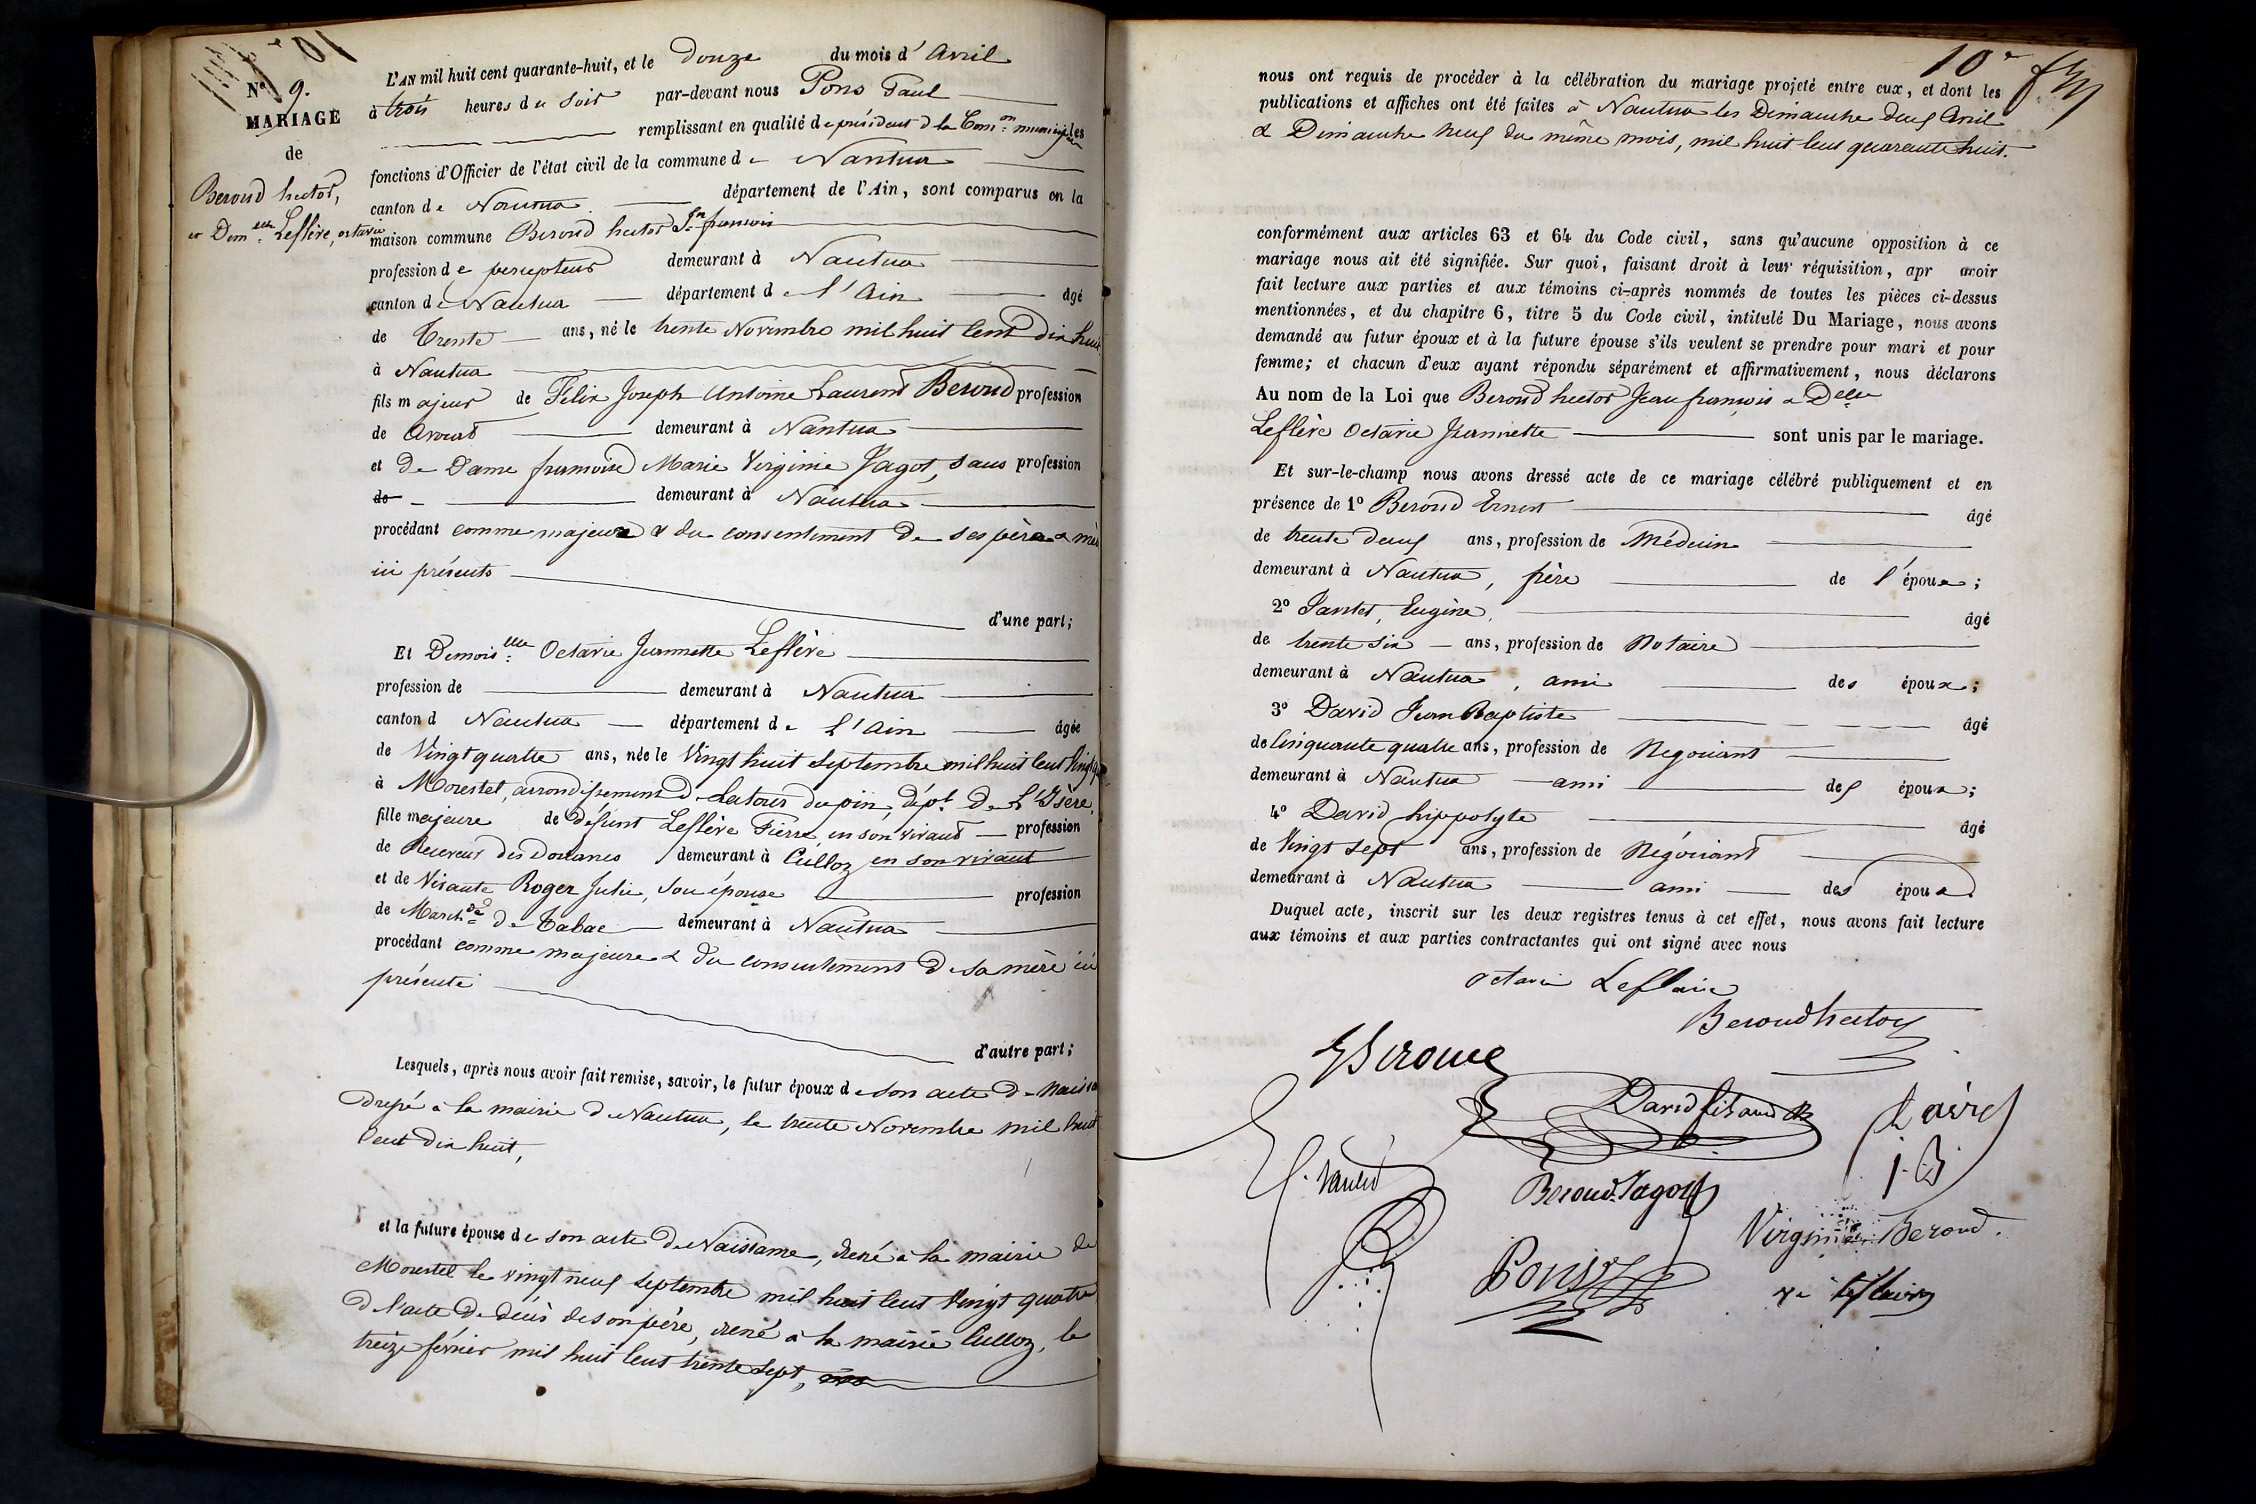 N° 9.
MARIAGE
de
Beroud hector,
et Dem.elle Leflère, octavie
L'AN mil huit cent quarante-huit, et le douze du mois d'avril
à trois heures du soir par-devant nous Pons Paul
remplissant en qualité de président de la Com.on municipale les
fonctions d'Officier de l'état civil de la commune de Nantua
canton de Nantua département de l'Ain, sont comparus en la
maison commune Beroud hector Jn françois
profession de percepteur demeurant à Nantua
canton de Nantua département de l'Ain âgé
de Trente ans, né le trente Novembre mil huit Cent Dix huit
à Nantua
fils majeur de Felix Joseph Antoine Laurent Beroud profession
de Avoué demeurant à Nantua
et de Dame françoise Marie Virginie Jagot, sans profession
de demeurant à Nantua
procédant comme majeur & du consentement de ses père & mère
ici présents
d'une part;
Et Demois.elle Octavie Jeannette Leflère
profession de demeurant à Nantua
canton d Nantua département de l'Ain âgée
de Vingt quatre ans, née le Vingt huit Septembre mil huit Cent Vingt
à Morestel, arrondissement de Latour du pin, dépt. de l'Isère,
fille majeure de défunt Leflère Pierre, en son vivant profession
de Receveur des Douanes demeurant à Culloz en son vivant
et de Vivante Roger Julie, son épouse profession
de March.de de Tabac demeurant à Nantua
procédant comme majeure & du consentement de sa mère ici
présente
d'autre part;
Lesquels, après nous avoir fait remise, savoir, le futur époux de son acte de Naissa
dressé à la mairie de Nantua, le trente Novembre mil huit
Cent Dix huit,
et la future épouse de son acte de Naissance, dressé à la mairie de
Morestel le vingt neuf Septembre mil huit Cent Vingt quatre
& l'acte de décès de son père, dressé à la mairie Culloz, le
treize février mil huit Cent trente sept,
10e
nous ont requis de procéder à la célébration du mariage projeté entre eux, et dont les
publications et affiches ont été faites à Nantua les Dimanche deux Avril
& Dimanche Neuf du même mois, mil huit Cent quarante huit.
conformément aux articles 63 et 64 du Code civil, sans qu'aucune opposition à ce
mariage nous ait été signifiée. Sur quoi, faisant droit à leur réquisition, apr avoir
fait lecture aux parties et aux témoins ci-après nommés de toutes les pièces ci-dessus
mentionnées, et du chapitre 6, titre 5 du Code civil, intitulé Du Mariage, nous avons
demandé au futur époux et à la future épouse s'ils veulent se prendre pour mari et pour
femme; et chacun d'eux ayant répondu séparément et affirmativement, nous déclarons
Au nom de la Loi que Beroud hector Jean françois & Delle
Leflère Octavie Jeannette sont unis par le mariage.
Et sur-le-champ nous avons dressé acte de ce mariage célébré publiquement et en
présence de 1° Beroud Ernest âgé
de trente deux ans, profession de Médecin
demeurant à Nantua, frère de l'époux;
2° Jantet, Eugène, âgé
de trente Six ans, profession de Notaire
demeurant à Nantua, ami des époux;
3° David Jean Baptiste âgé
de Cinquante quatre ans, profession de Negociant
demeurant à Nantua ami des époux;
4° David hippolyte âgé
de Vingt sept ans, profession de Négociant
demeurant à Nantua ami des époux
Duquel acte, inscrit sur les deux registres tenus à cet effet, nous avons fait lecture
aux témoins et aux parties contractantes qui ont signé avec nous
octavie Leflaire
Beroud hector
E Beroud
David
E. Jantet
David
J. B
Beroud Jagot
Virginie Beroud.
Pons
ve Leflaire